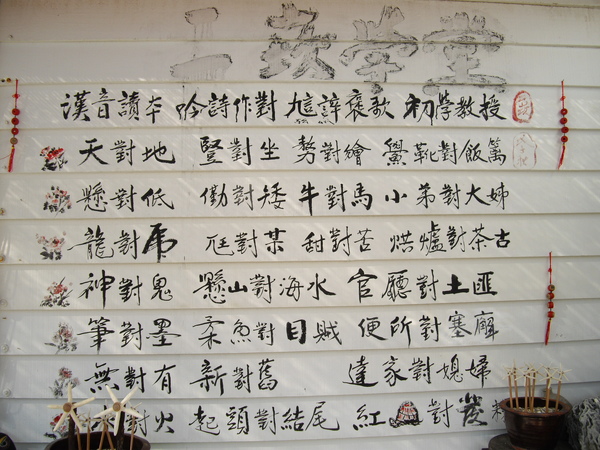 三玖学堂
漢音讀本 吟詩作對 九言諄褒歌 初學教授
天對地 豎對坐 勢對繪 鱟靴對飯篱
懸對低 勥對矮 牛對馬 小弟對大姊
龍對虎 尪對某 甜對苦 烘爐對茶古
神對鬼 懸山對海水 官廳對土匪
筆對墨 柔魚對目賊 便所對塞廨
無對有 新對舊 達家對媳婦
對火 起頭對結尾 紅 對發